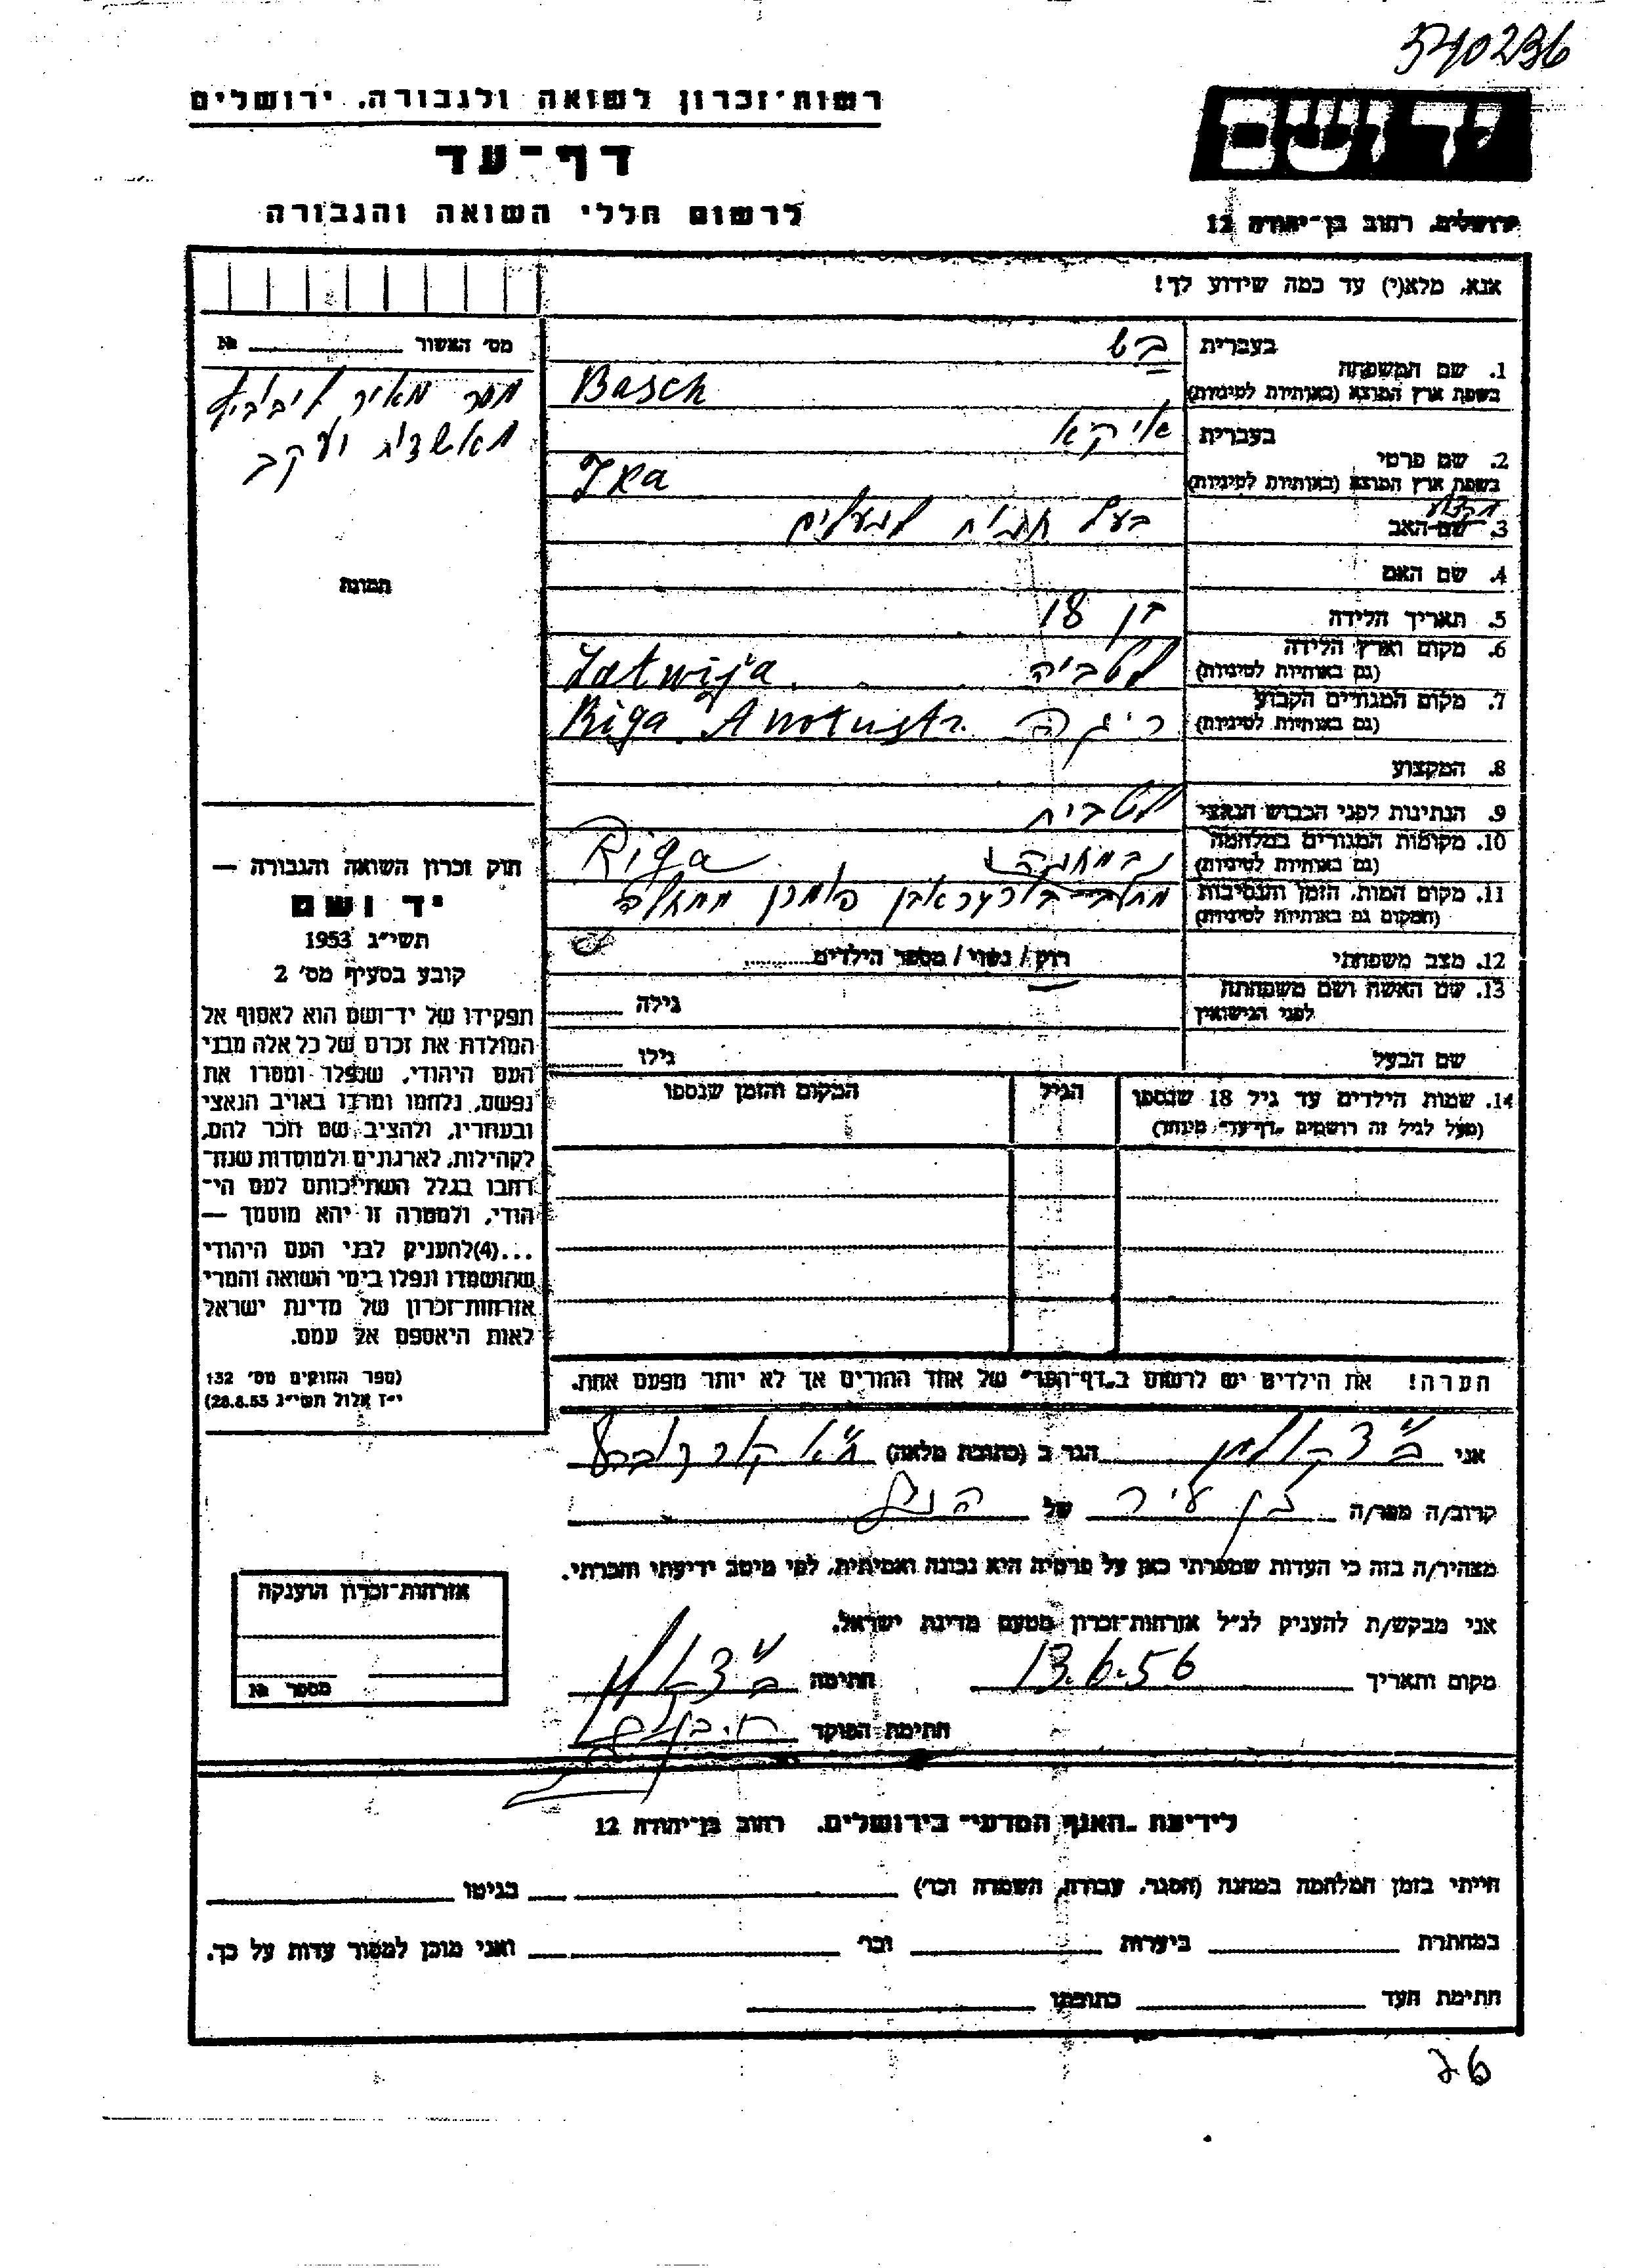 540236
רשות־זכרון לשואה ולגבורה. ירושלים
דף־עד
לרשום חללי השואה והגבורה
ידושם
ירושלים, רחוב בן־יהודה 12
אנא, מלא(י) עד כמה שידוע לך!
מס׳ האשור №
תמונה
1. שם המשפחה בעברית בש
בשפת ארץ המוצא (באותיות לטיניות) Basch
2. שם פרטי בעברית איקא
בשפת ארץ המוצא (באותיות לטיניות) Ika
3. שם האב בעל
4. שם האם
5. תאריך הלידה בן 18
6. מקום וארץ הלידה לטביה Latwija
(גם באותיות לטיניות)
7. מקום המגורים הקבוע ריגה Riga
(גם באותיות לטיניות)
8. המקצוע
9. הנתינות לפני הכבוש הנאצי לטבית
10. מקומות המגורים במלחמה Riga
(גם באותיות לטיניות)
11. מקום המות, הזמן והנסיבות
(המקום גם באותיות לטיניות)
12. מצב משפחתי רוק / נשוי / מספר הילדים
13. שם האשה ושם משפחתה גילה
לפני הנישואין
שם הבעל גילו
14. שמות הילדים עד גיל 18 שנספו הגיל המקום והזמן שנספו
(מעל לגיל זה רושמים „דף־עד״ מיוחד)
חוק זכרון השואה והגבורה —
יד ושם
תשי״ג 1953
קובע בסעיף מס׳ 2
תפקידו של יד־ושם הוא לאסוף אל
המולדת את זכרם של כל אלה מבני
העם היהודי, שנפלו ומסרו את
נפשם, נלחמו ומרדו באויב הנאצי
ובעוזריו, ולהציב שם וזכר להם,
לקהילות, לארגונים ולמוסדות שנח־
רבו בגלל השתייכותם לעם הי־
הודי, ולמטרה זו יהא מוסמך —
...(4) להעניק לבני העם היהודי
שהושמדו ונפלו בימי השואה והמרי
אזרחות־זכרון של מדינת ישראל
לאות היאספם אל עמם.
(ספר החוקים מס׳ 132
י״ז אלול תשי״ג 28.8.53)
הערה! את הילדים יש לרשום ב„דף־העד״ של אחד ההורים אך לא יותר מפעם אחת.
אני הגר ב (כתובת מלאה)
קרוב/ה מכר/ה בן עיר של הנ״ל
מצהיר/ה בזה כי העדות שמסרתי כאן על פרטיה היא נכונה ואמיתית, לפי מיטב ידיעתי והכרתי.
אני מבקש/ת להעניק לנ״ל אזרחות־זכרון מטעם מדינת ישראל.
מקום ותאריך 13.6.56 חתימה
חתימת הפוקד
אזרחות־זכרון הוענקה
מספר №
לידיעת „האגף המדעי״ בירושלים, רחוב בן־יהודה 12
הייתי בזמן המלחמה במחנה (הסגר, עבודה, השמדה וכו׳) בגיטו
במחתרת ביערות וכו׳ ואני מוכן למסור עדות על כך.
חתימת העד כתובתו